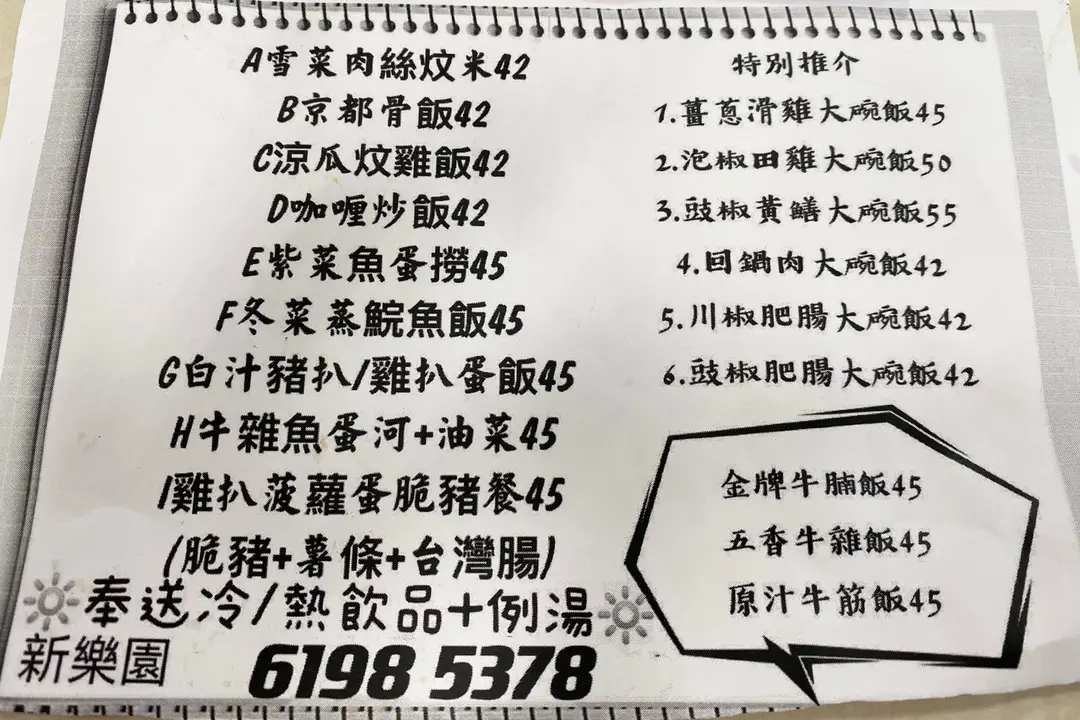 A雪菜肉絲炆米42
B京都骨飯42
C涼瓜炆雞飯42
D咖喱炒飯42
E紫菜魚蛋撈45
F冬菜蒸鯇魚飯45
G白汁豬扒/雞扒蛋飯45
H牛雜魚蛋河+油菜45
I雞扒菠蘿蛋脆豬餐45
(脆豬+薯條+台灣腸)
奉送冷/熱飲品+例湯
新樂園 6198 5378
特別推介
1.薑蔥滑雞大碗飯45
2.泡椒田雞大碗飯50
3.豉椒黃鱔大碗飯55
4.回鍋肉大碗飯42
5.川椒肥腸大碗飯42
6.豉椒肥腸大碗飯42
金牌牛腩飯45
五香牛雜飯45
原汁牛筋飯45